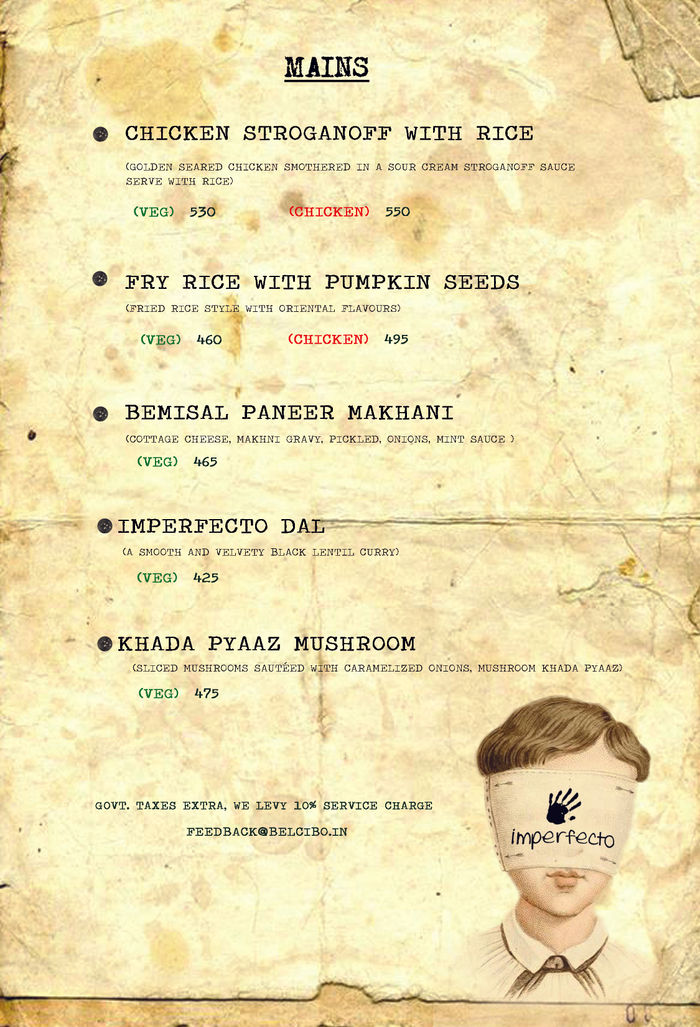 MAINS
CHICKEN STROGANOFF WITH RICE
(GOLDEN SEARED CHICKEN SMOTHERED IN A SOUR CREAM STROGANOFF SAUCE
SERVE WITH RICE)
(VEG) 530 (CHICKEN) 550
FRY RICE WITH PUMPKIN SEEDS
(FRIED RICE STYLE WITH ORIENTAL FLAVOURS)
(VEG) 460 (CHICKEN) 495
BEMISAL PANEER MAKHANI
(COTTAGE CHEESE, MAKHNI GRAVY, PICKLED, ONIONS, MINT SAUCE )
(VEG) 465
IMPERFECTO DAL
(A SMOOTH AND VELVETY BLACK LENTIL CURRY)
(VEG) 425
KHADA PYAAZ MUSHROOM
(SLICED MUSHROOMS SAUTÉED WITH CARAMELIZED ONIONS, MUSHROOM KHADA PYAAZ)
(VEG) 475
GOVT. TAXES EXTRA, WE LEVY 10% SERVICE CHARGE
FEEDBACK@BELCIBO.IN
imperfecto